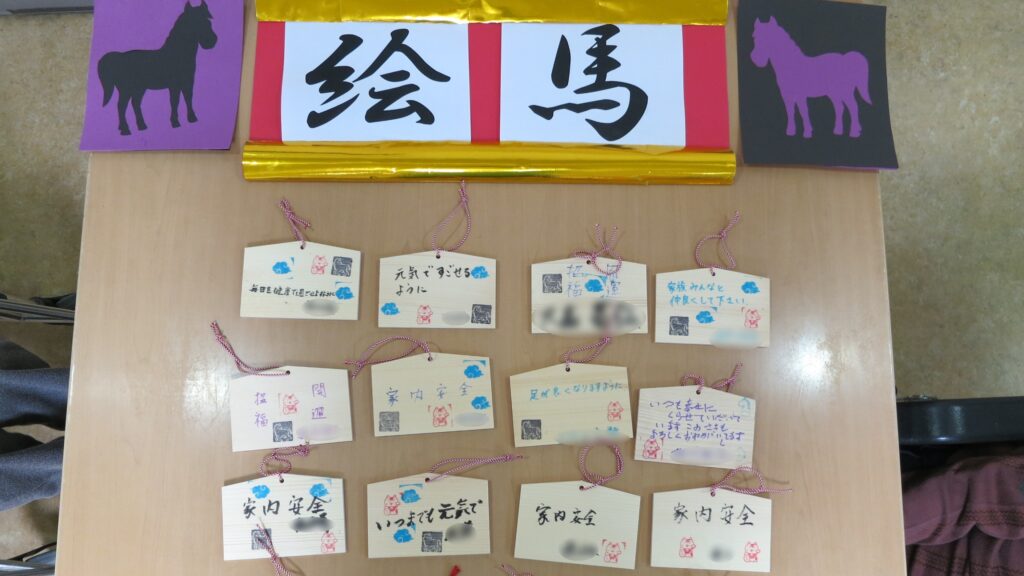 絵馬
毎日を健康で過ごせますように
元気ですごせる
ように
招 開
福 運
家族みんなと
仲良くして下さい
招 開
福 運
家内安全
足が良くなりますように
いつも幸せに
くらせていただいて
います このさきも
よろしくおねがいします
家内安全
いつまでも元気で
家内安全
家内安全